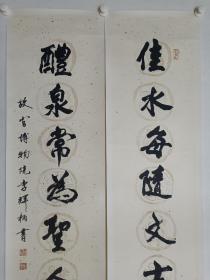 佳水每隨文士
醴泉常為聖人
故宮博物院李輝柄書